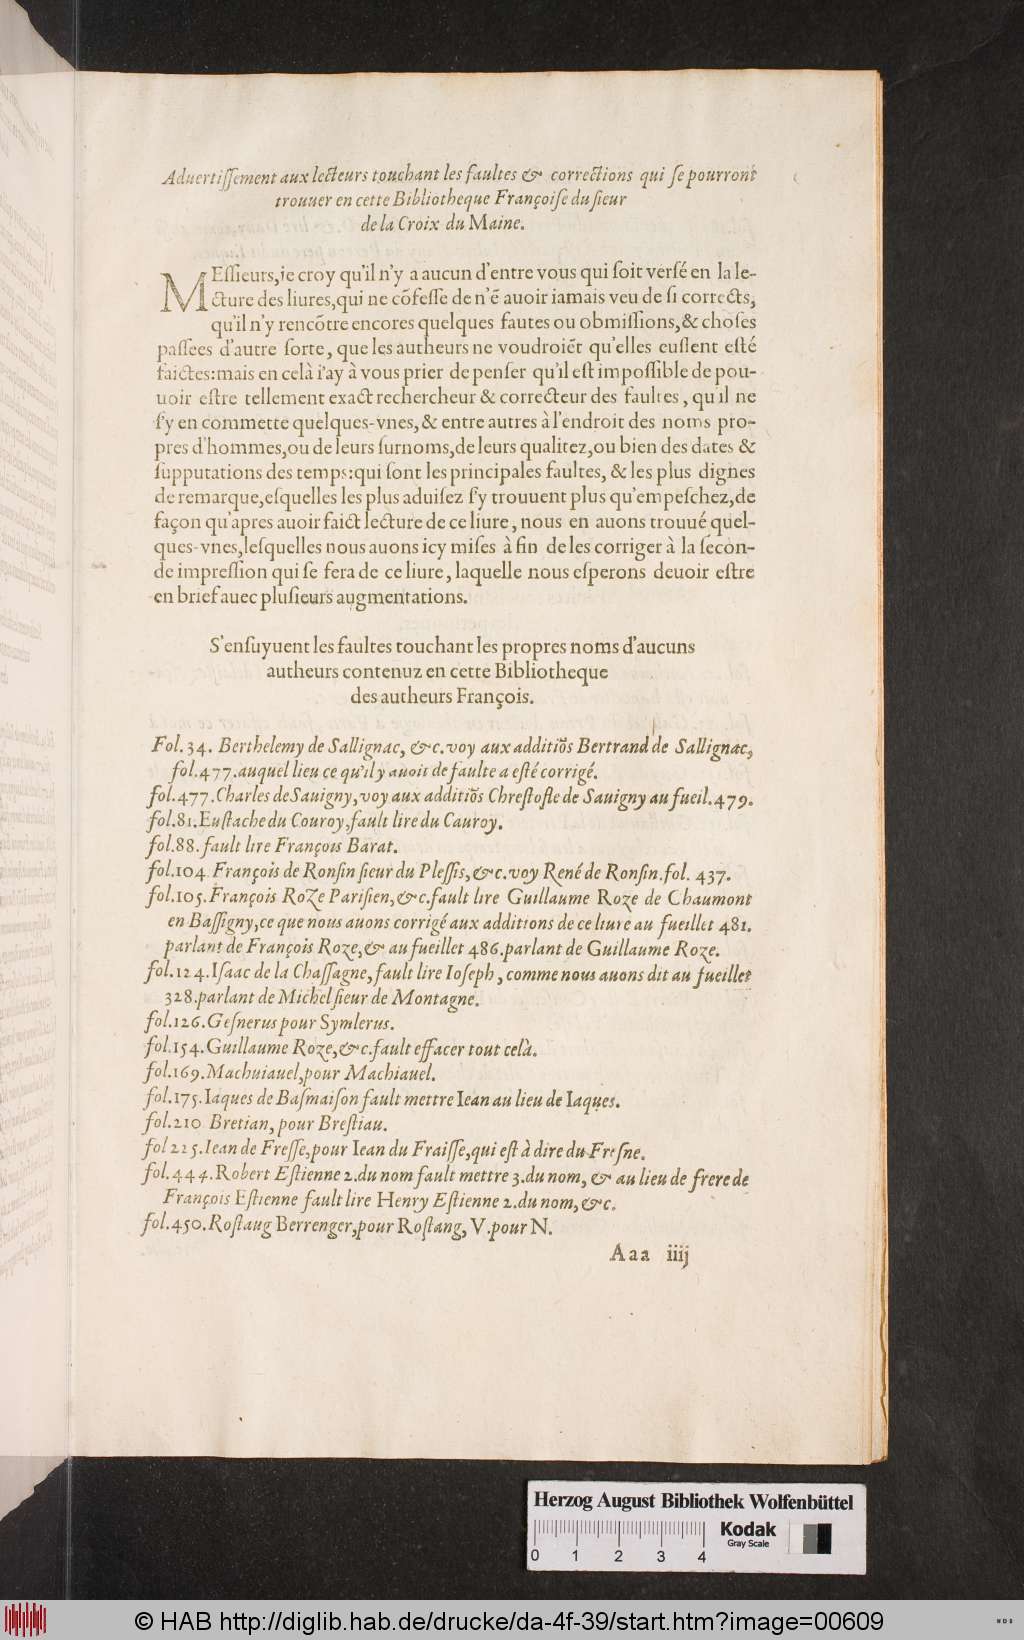 Aduertiſſement aux lecteurs touchant les faultes & corrections qui ſe pourront
trouuer en cette Bibliotheque Françoiſe du ſieur
de la Croix du Maine.
MEſſieurs, ie croy qu'il n'y a aucun d'entre vous qui ſoit verſé en la le-
cture des liures, qui ne cõfeſſe de n'ẽ auoir iamais veu de ſi corrects,
qu'il n'y rencõtre encores quelques fautes ou obmiſſions, & choſes
paſſees d'autre ſorte, que les autheurs ne voudroiẽt qu'elles euſſent eſté
faictes: mais en celà i'ay à vous prier de penſer qu'il eſt impoſſible de pou-
uoir eſtre tellement exact rechercheur & correcteur des faultes, qu'il ne
ſ'y en commette quelques-vnes, & entre autres à l'endroit des noms pro-
pres d'hommes, ou de leurs ſurnoms, de leurs qualitez, ou bien des dates &
ſupputations des temps: qui ſont les principales faultes, & les plus dignes
de remarque, eſquelles les plus aduiſez ſ'y trouuent plus qu'empeſchez, de
façon qu'apres auoir faict lecture de ce liure, nous en auons trouué quel-
ques-vnes, leſquelles nous auons icy miſes à fin de les corriger à la ſecon-
de impreſſion qui ſe fera de ce liure, laquelle nous eſperons deuoir eſtre
en brief auec pluſieurs augmentations.
S'enſuyuent les faultes touchant les propres noms d'aucuns
autheurs contenuz en cette Bibliotheque
des autheurs François.
Fol. 34. Berthelemy de Sallignac, &c. voy aux additiõs Bertrand de Sallignac,
fol. 477. auquel lieu ce qu'il y auoit de faulte a eſté corrigé.
fol. 477. Charles de Sauigny, voy aux additiõs Chreſtofle de Sauigny au fueil. 479.
fol. 81. Euſtache du Couroy, fault lire du Cauroy.
fol. 88. fault lire François Barat.
fol. 104. François de Ronſin ſieur du Pleſſis, &c. voy René de Ronſin. fol. 437.
fol. 105. François Roze Pariſien, &c. fault lire Guillaume Roze de Chaumont
en Baſſigny, ce que nous auons corrigé aux additions de ce liure au fueillet 481.
parlant de François Roze, & au fueillet 486. parlant de Guillaume Roze.
fol. 124. Iſaac de la Chaſſagne, fault lire Ioſeph, comme nous auons dit au fueillet
328. parlant de Michel ſieur de Montagne.
fol. 126. Geſnerus pour Symlerus.
fol. 154. Guillaume Roze, &c. fault effacer tout celà.
fol. 169. Machuiauel, pour Machiauel.
fol. 175. Iaques de Baſmaiſon fault mettre Iean au lieu de Iaques.
fol. 210 Bretian, pour Breſtiau.
fol 225. Iean de Freſſe, pour Iean du Fraiſſe, qui eſt à dire du Freſne.
fol. 444. Robert Eſtienne 2. du nom fault mettre 3. du nom, & au lieu de frere de
François Eſtienne fault lire Henry Eſtienne 2. du nom, &c.
fol. 450. Roſtaug Berrenger, pour Roſtang, V. pour N.
Aaa iiij
Herzog August Bibliothek Wolfenbüttel
0 1 2 3 4
Kodak
Gray Scale
© HAB http://diglib.hab.de/drucke/da-4f-39/start.htm?image=00609